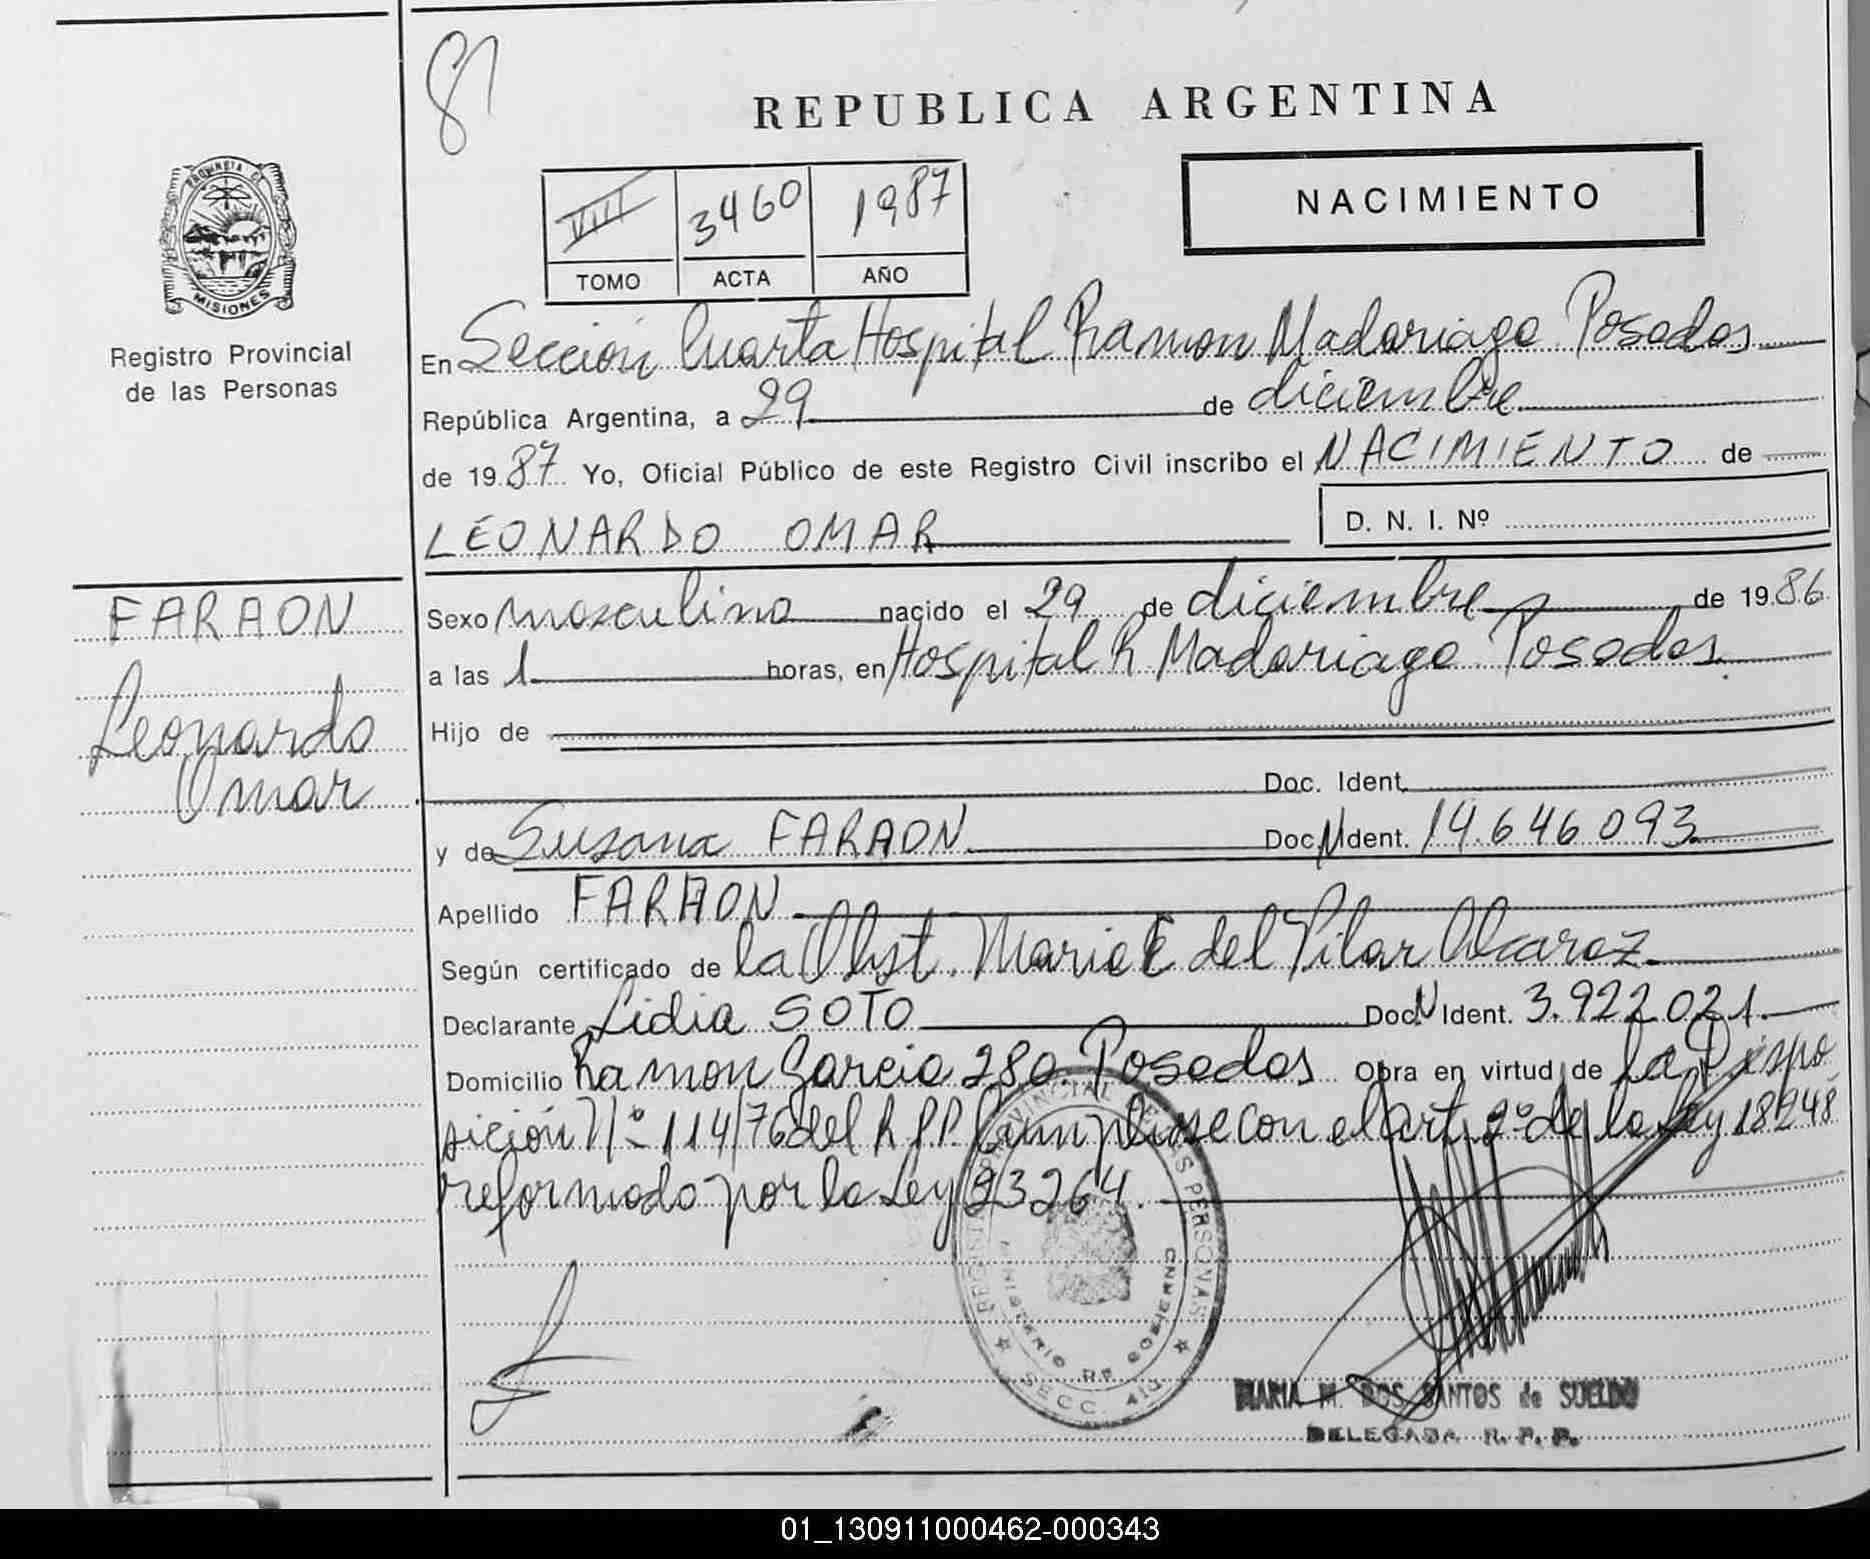 81
REPUBLICA ARGENTINA
PROVINCIA DE
MISIONES
Registro Provincial
de las Personas
VIII 3460 1987
TOMO ACTA AÑO
NACIMIENTO
En Sección Cuarta Hospital Ramon Madariaga Posadas
República Argentina, a 29 de diciembre
de 1987 Yo, Oficial Público de este Registro Civil inscribo el NACIMIENTO de
LEONARDO OMAR
D. N. I. Nº
FARAON
Leonardo
Omar
Sexo masculino nacido el 29 de diciembre de 1986
a las 1 horas, en Hospital R Madariaga. Posadas.
Hijo de
Doc. Ident.
y de Susana FARAON Doc N Ident. 14.646.093
Apellido FARAON
Según certificado de la Obst. Maria E del Pilar Alcaraz
Declarante Lidia SOTO Doc. N Ident. 3.922.021.
Domicilio Ramon Garcia 280. Posadas Obra en virtud de la Dispo
sición Nº 114/76 del R.P.P. Cumplirse con el art. 2º de la Ley 18248
reformado por la Ley 23264.
REGISTRO PROVINCIAL DE LAS PERSONAS
MINISTERIO DE GOBIERNO
SECC. 4ta
MARIA M. DOS SANTOS de SUELDO
DELEGADA R. P. P.
01_130911000462-000343